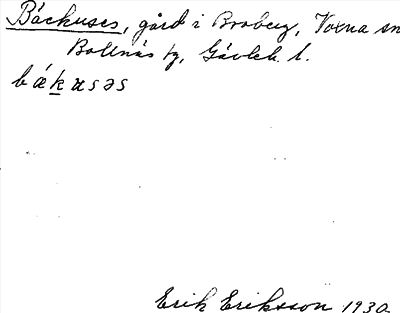 Bäckuses, gård i Broberg, Voxna sn
Bollnäs tg, Gävleb. l.
bǽkusəs
Erik Eriksson 1930